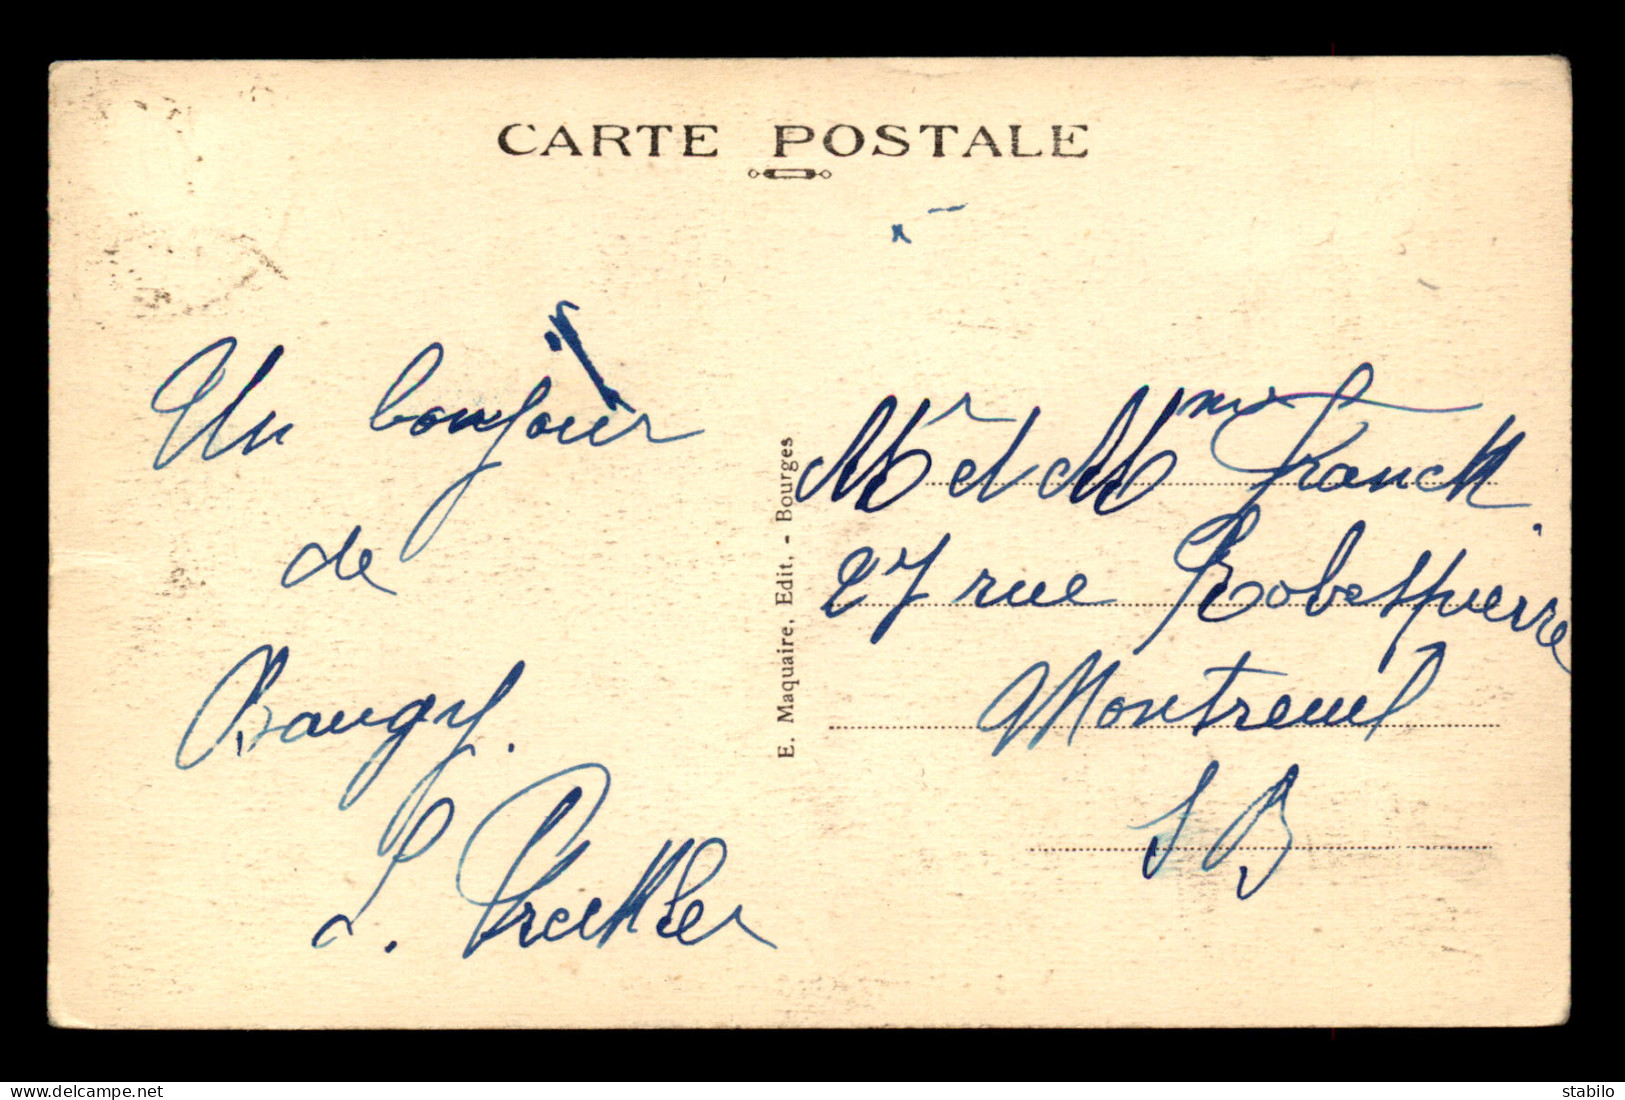 CARTE POSTALE
Un bonjour
de
Baugy.
E. Maquaire, Edit. - Bourges
Mr et Mme Franck
27 rue Robespierre
Montreuil
S B
www.delcampe.net
stabilo